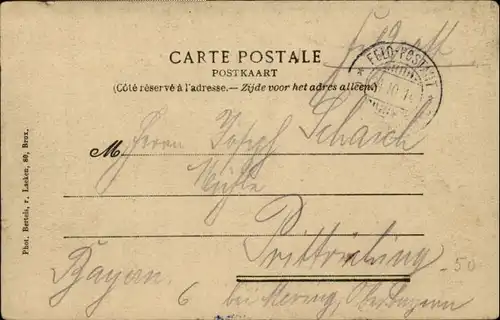 Feldpost
CARTE POSTALE
POSTKAART
(Côté réservé à l'adresse.— Zijde voor het adres alleen)
FELD-POST
10.14
M Herrn Josef Schaich
Mühle
Prittriching
Bayern.
6 bei Mering, Oberbayern
50
Phot. Bertels, r. Laeken, 60, Brux.